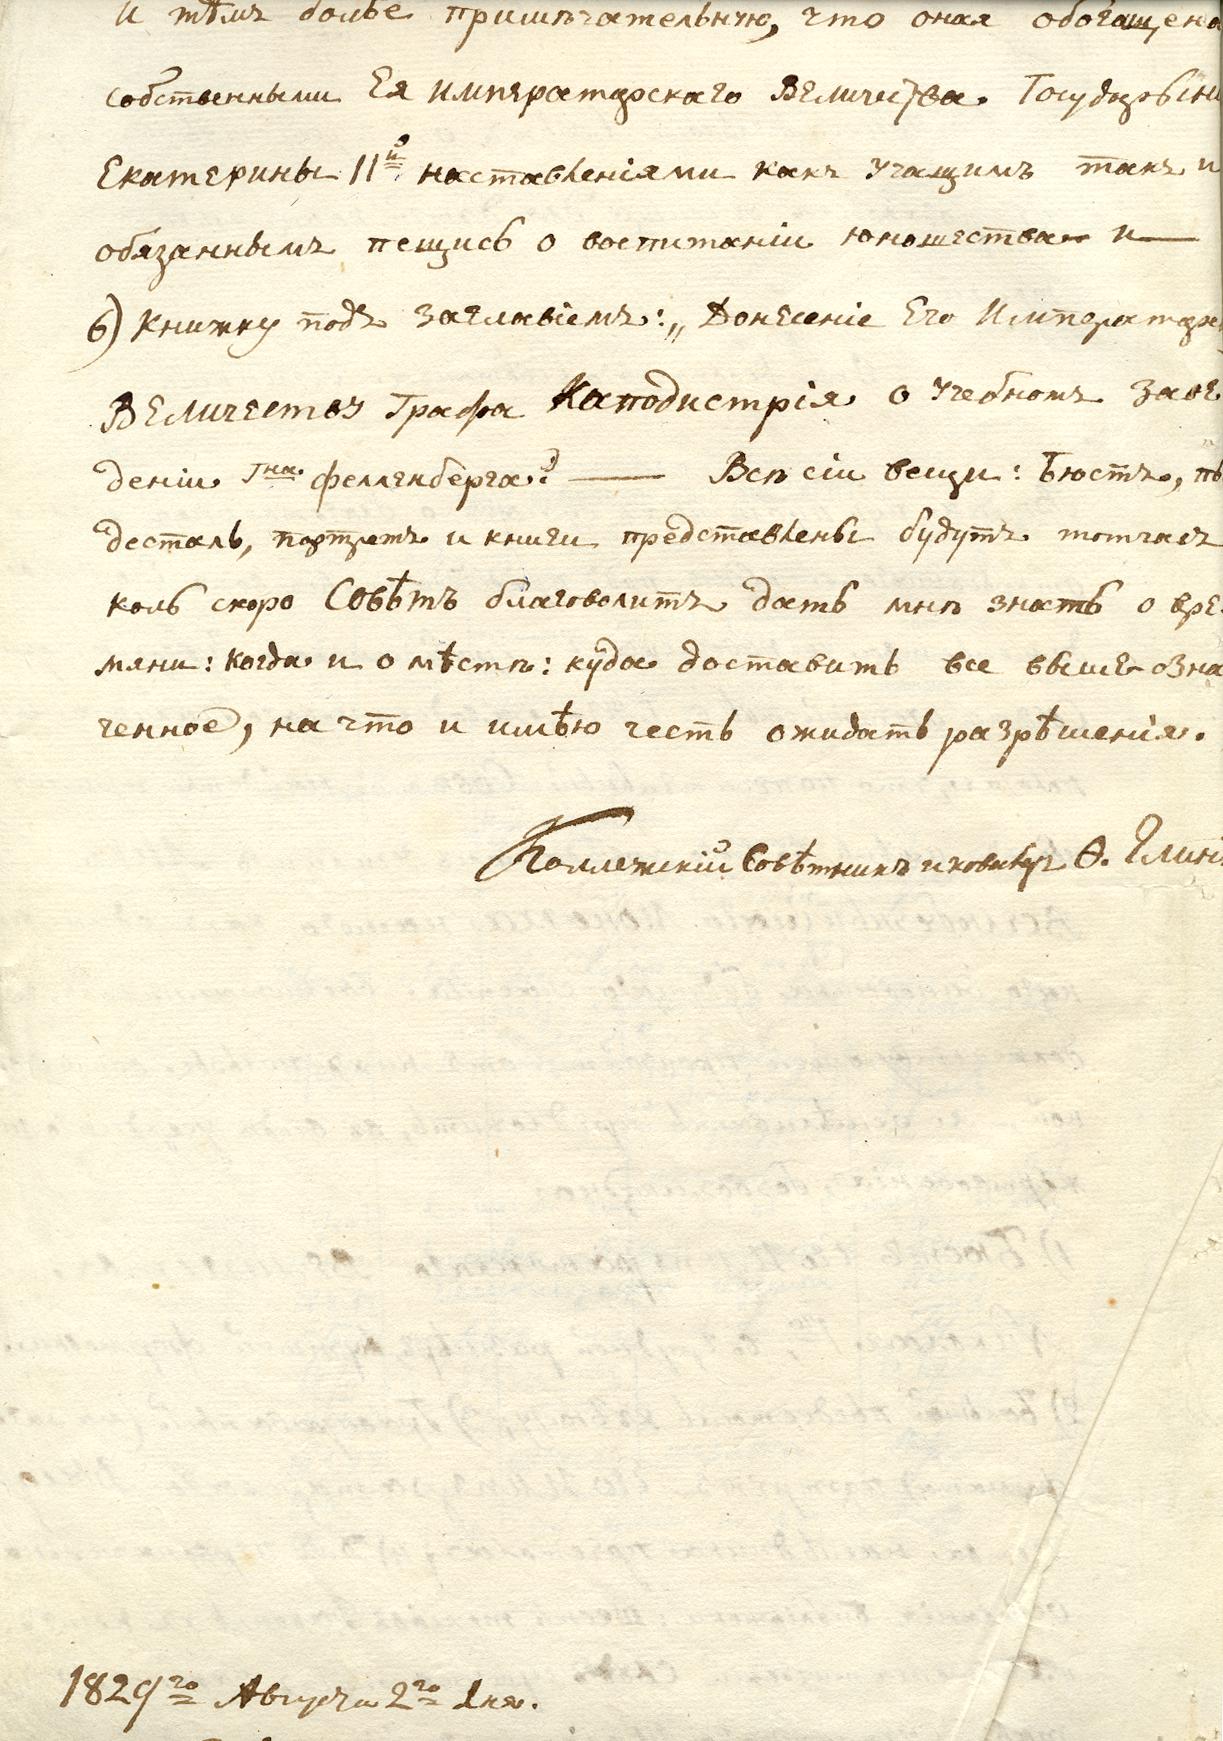 и тѣмъ болѣе примѣчательную, что оная обогащена
собственными Ея Императорскаго Величества Государыни
Екатерины IIй наставленіями какъ Учащимъ такъ и
обязаннымъ пещись о воспитаніи юношества и
6) Книжку подъ заглавіемъ: „Донесеніе Его Императорс
Величеству Графа Каподистрія о Учебномъ Заве
деніи Гна Фелленберга. Всѣ сіи вещи: Бюстъ, пь
десталь, портретъ и книги представлены будутъ тотчасъ
коль скоро Совѣтъ благоволитъ дать мнѣ знать о вре
мяни: когда и о мѣстѣ: куда доставить все выше озна
ченное, на что и имѣю честь ожидать разрѣшенія.
Коллежскій Совѣтникъ и кавалеръ Ѳ.
1829го Августа 2го дня.